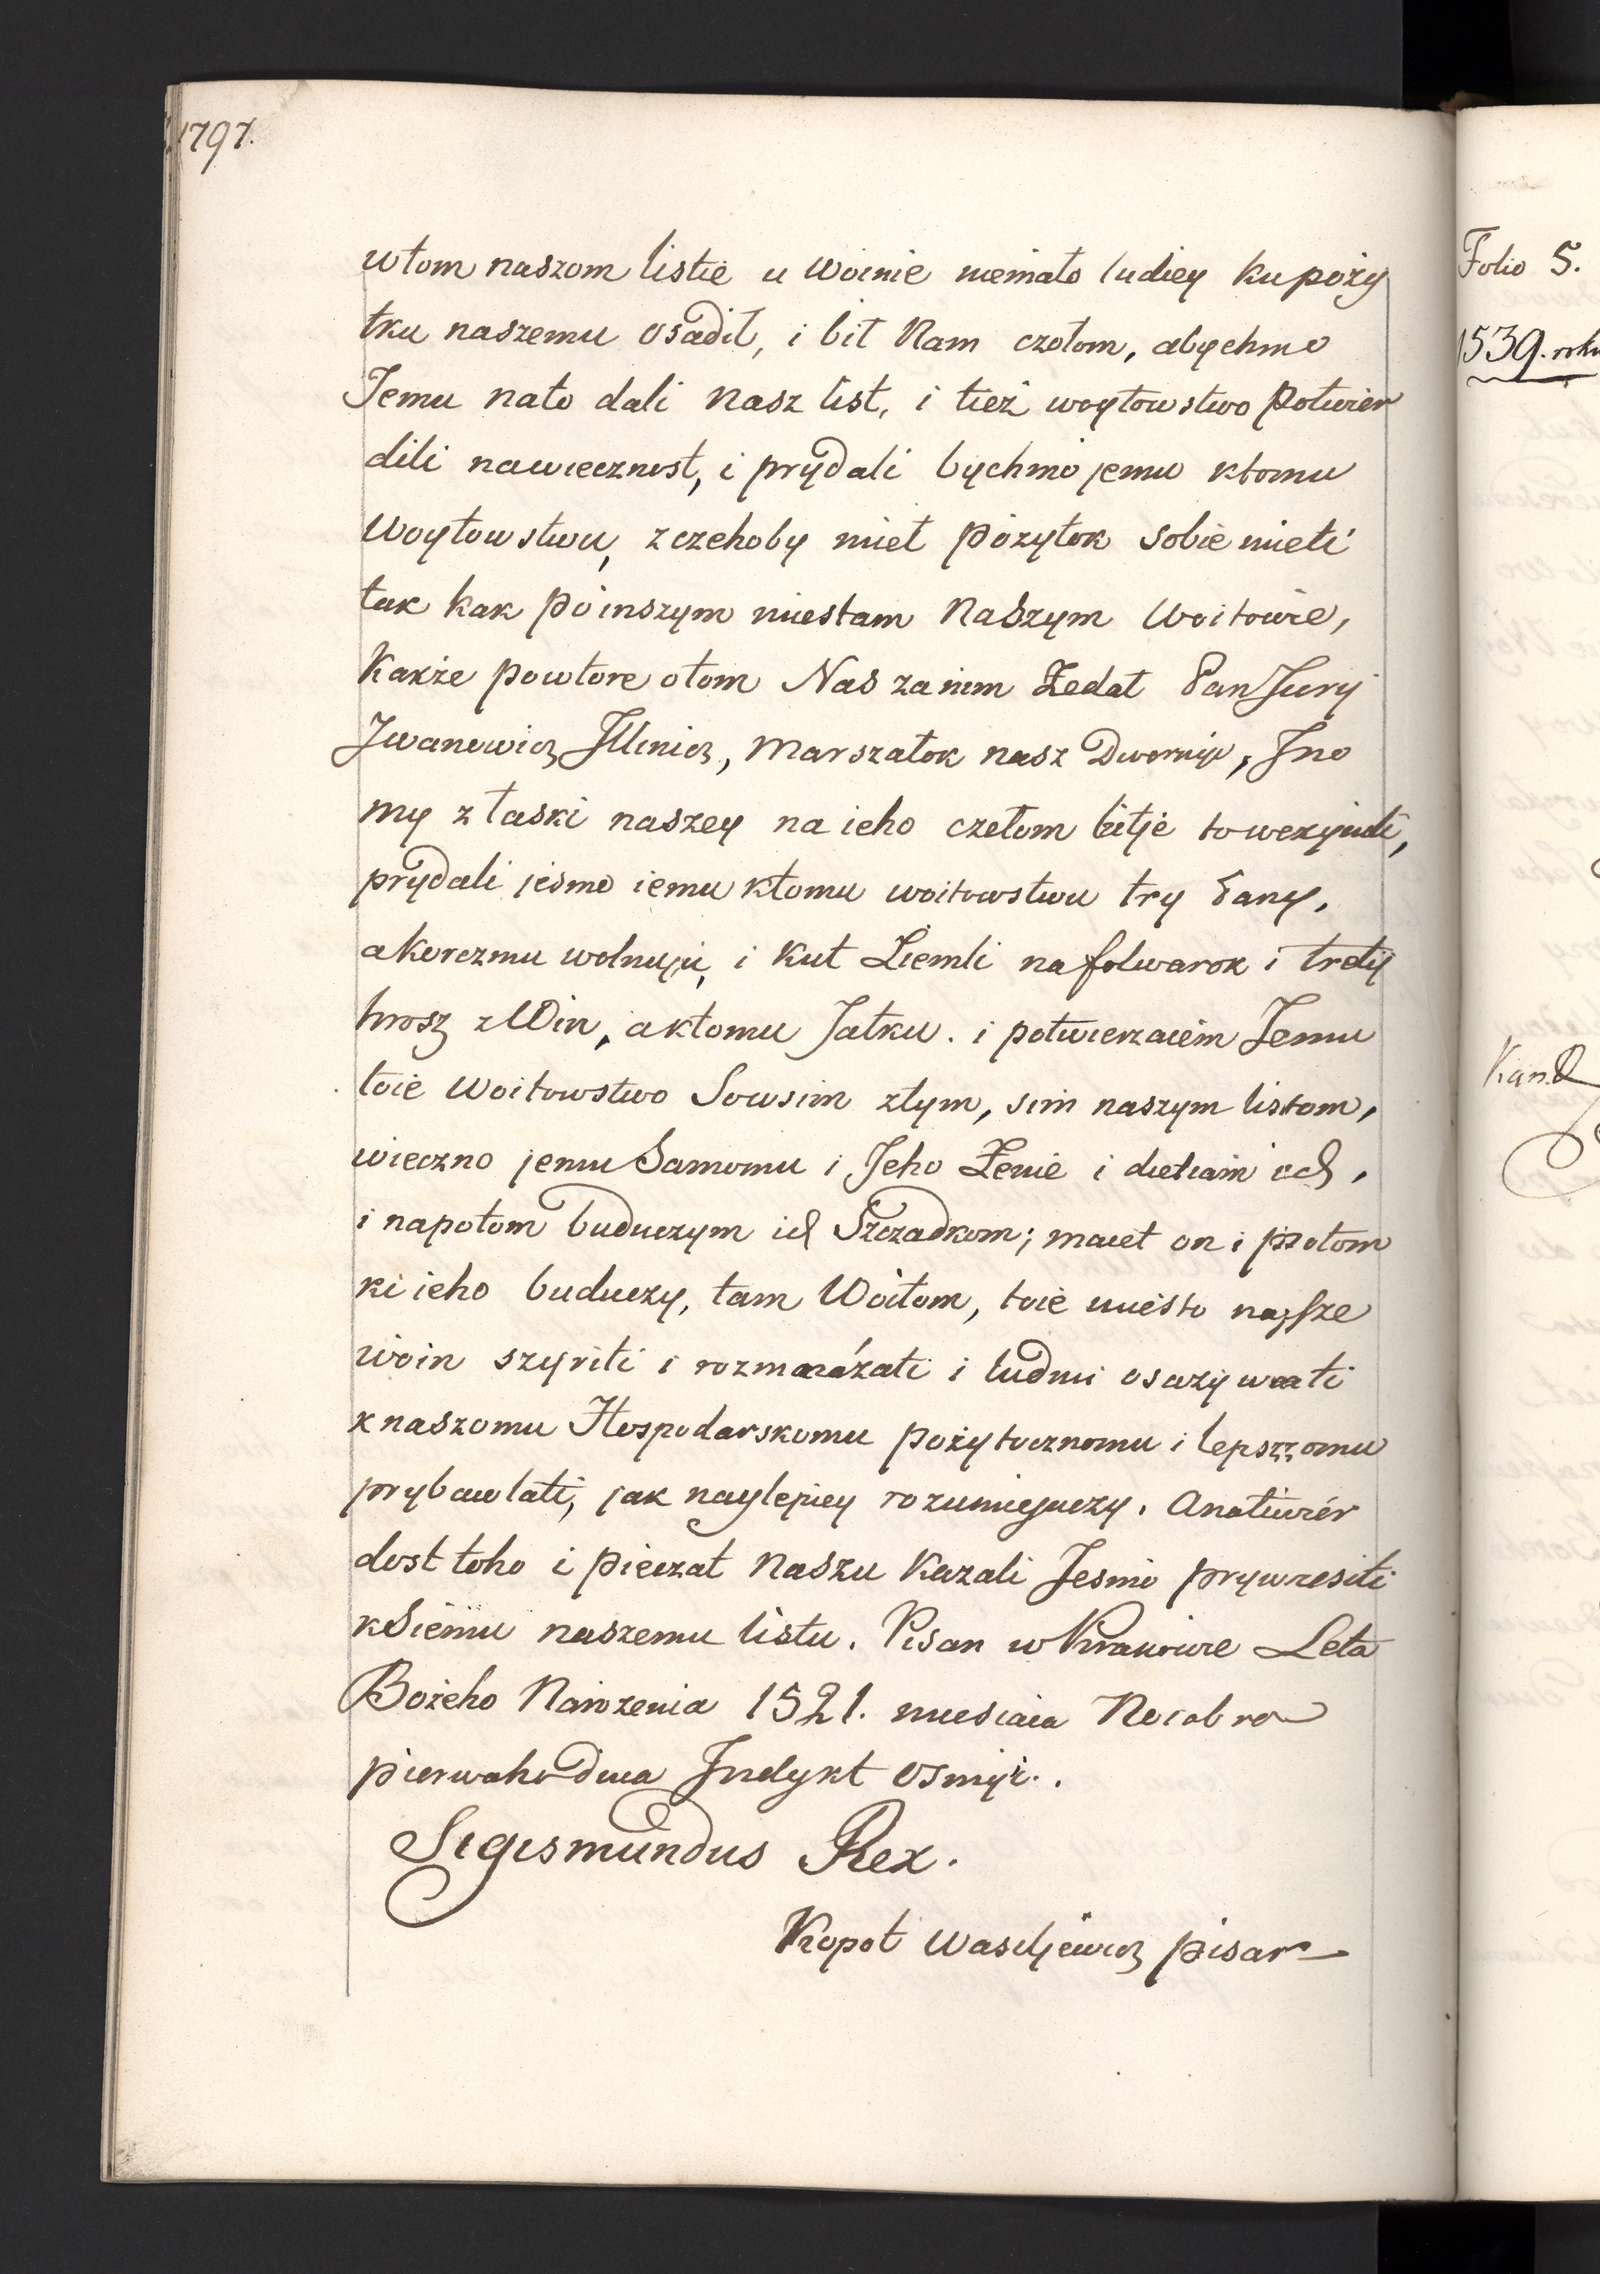 1797.
w tom naszom listie u Woinie niemało ludiey ku pożÿ
tku naszemu osadił, i bił Nam czołom, abychmo
Jemu na to dali Nasz list, i tież woytowstwo Potwier
dili na wiecznost, i prydali bychmo jemu ktomu
Woytowstwu, z czehoby mieł pożytok sobie mieti
tak kak po inszym miestam Naszym Woitowie,
Kakże powtore o tom Nas za nim Żedał Pan Juryi
Jwanowicz Jllinicz, Marszałok nasz Dwornyi, Jno
my z łaski naszey na ieho czełom bitje to wczynili,
prydali jesmo iemu ktomu woitowstwu try Łany,
a korczmu wolnuju, i Kut Ziemli na folwarok i tretij
hrosz z Win, a ktomu Jatku. i potwierzaiem Jemu
toie Woitowstwo Sowsim ztym, sim naszym listom,
wieczno jemu Samomu i Jeho Żenie i dietiam ich,
i na potom buduczym ich Szczadkom; maiet on i potom
ki ieho buduczy, tam Woitom, toie miesto nasze
Woin szyriti i rozmnażati i ludmi osażywati
k naszomu Hospodarskomu pożytocznomu i lepszomu
prybawlati, jak naylepiey rozumiejuczy. A na twier
dost toho i pieczat Naszu Kazali Jesmo prywiesiti
k Siemu naszemu listu. Pisan w Krakowie Leta
Bożeho Narozenia 1521. miesiaca Noiabra
pierwaho dnia Jndykt osmyi.
Sigismundus Rex.
Kopot Wasiljewicz pisar
Folio 5.
1539. roku